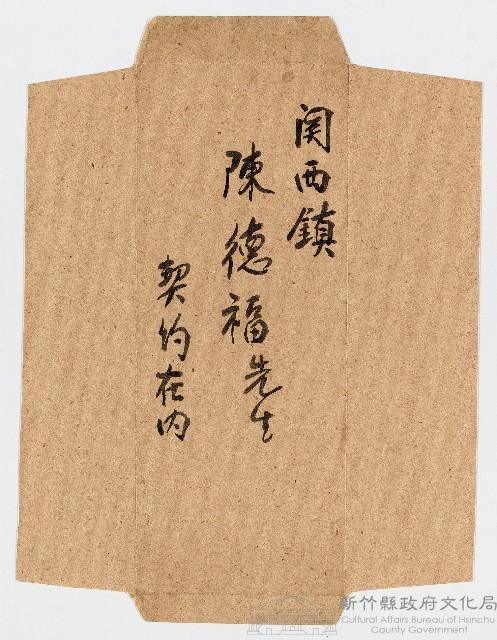 関西鎮
陳德福先生
契約在內
新竹縣政府文化局
Cultural Affairs Bureau of Hsinchu
County Government